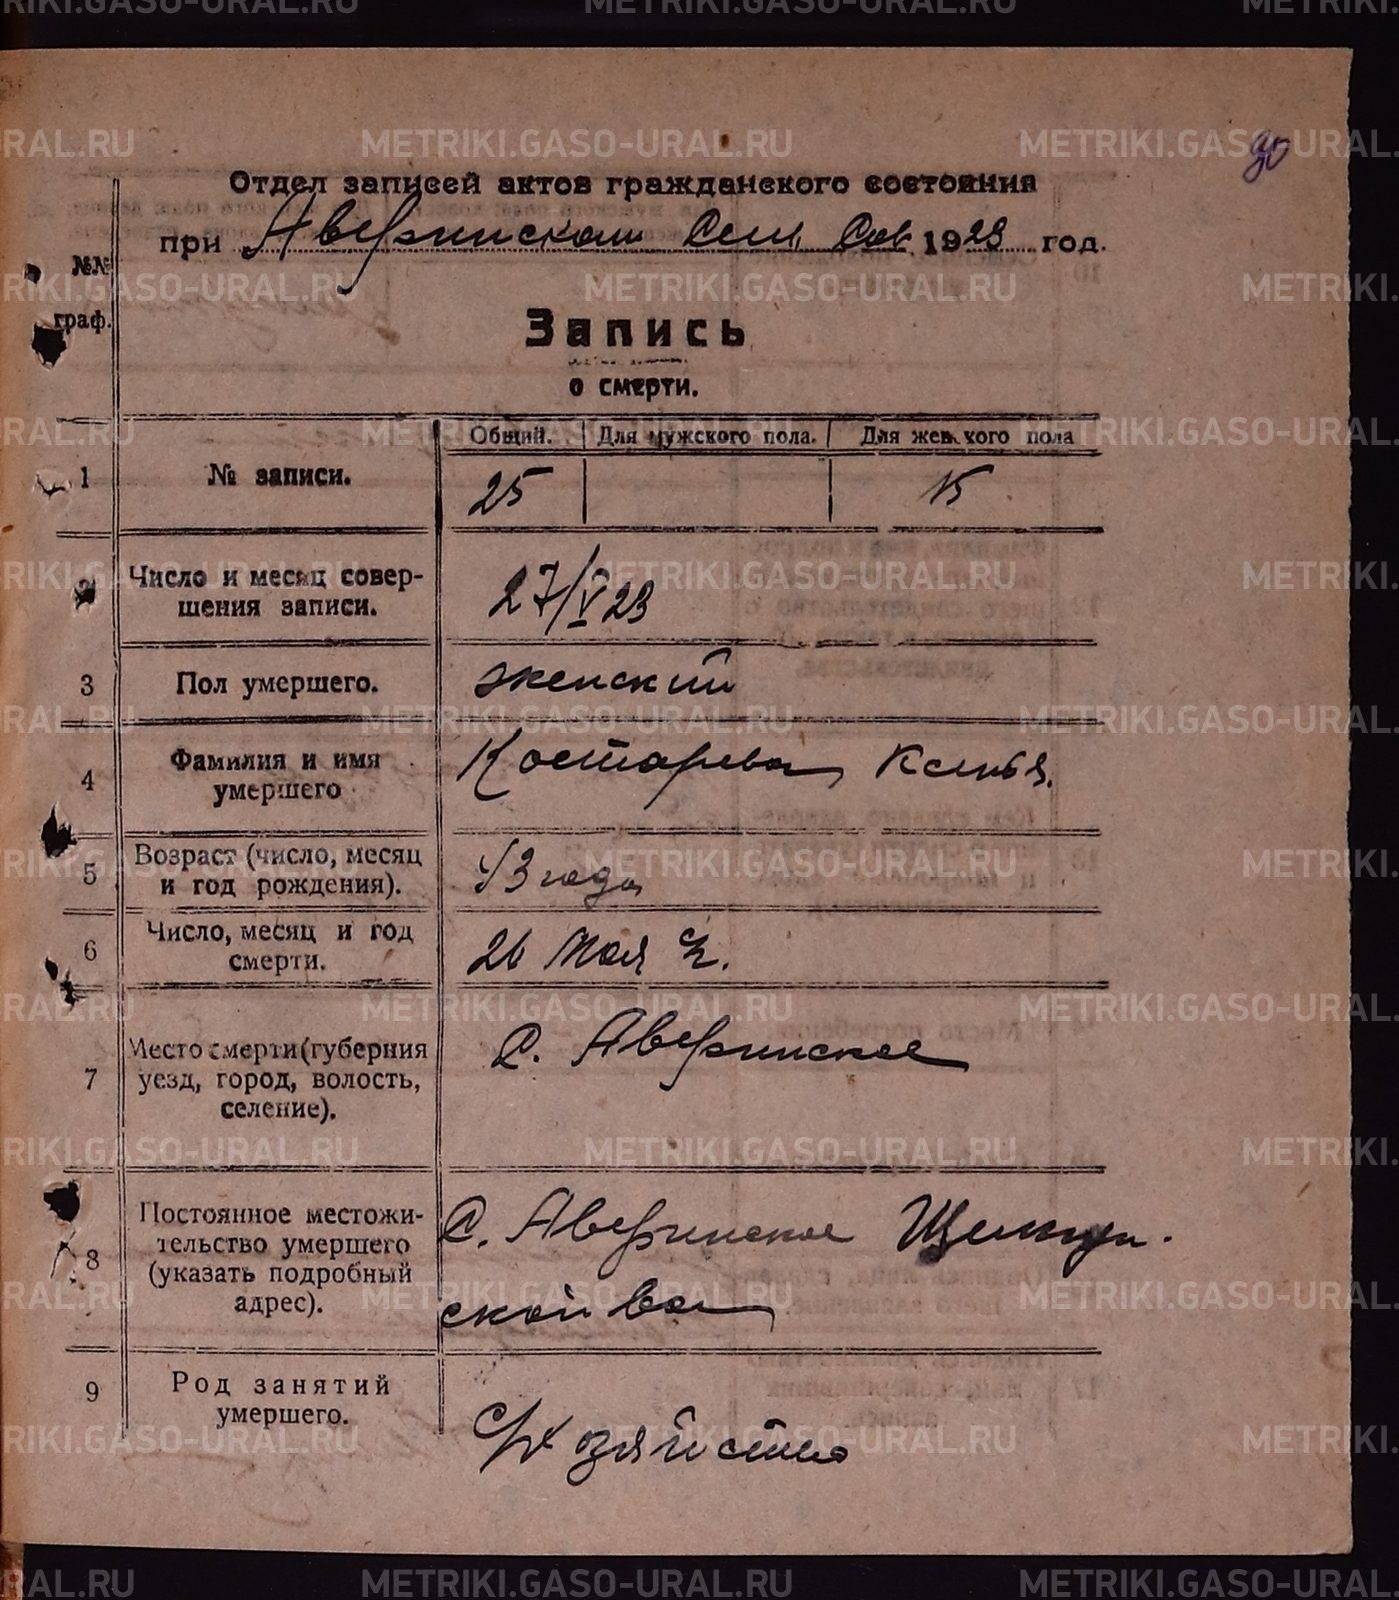 90
Отдел записей актов гражданского состояния
при Аверинском Сель Сов. 1923 год.
№№ граф.
Запись
о смерти.
Общий. Для мужского пола. Для женского пола
1 № записи. 25 15
2 Число и месяц совер-
шения записи. 27/V 23
3 Пол умершего. женский
4 Фамилия и имя
умершего Костарева Ксенья.
5 Возраст (число, месяц
и год рождения). 43 года
6 Число, месяц и год
смерти. 26 Мая
7 Место смерти (губерния
уезд, город, волость,
селение). С. Аверинское
8 Постоянное местожи-
тельство умершего
(указать подробный
адрес). С. Аверинское
ской вол
9 Род занятий
умершего. С/хозяйство
METRIKI.GASO-URAL.RU